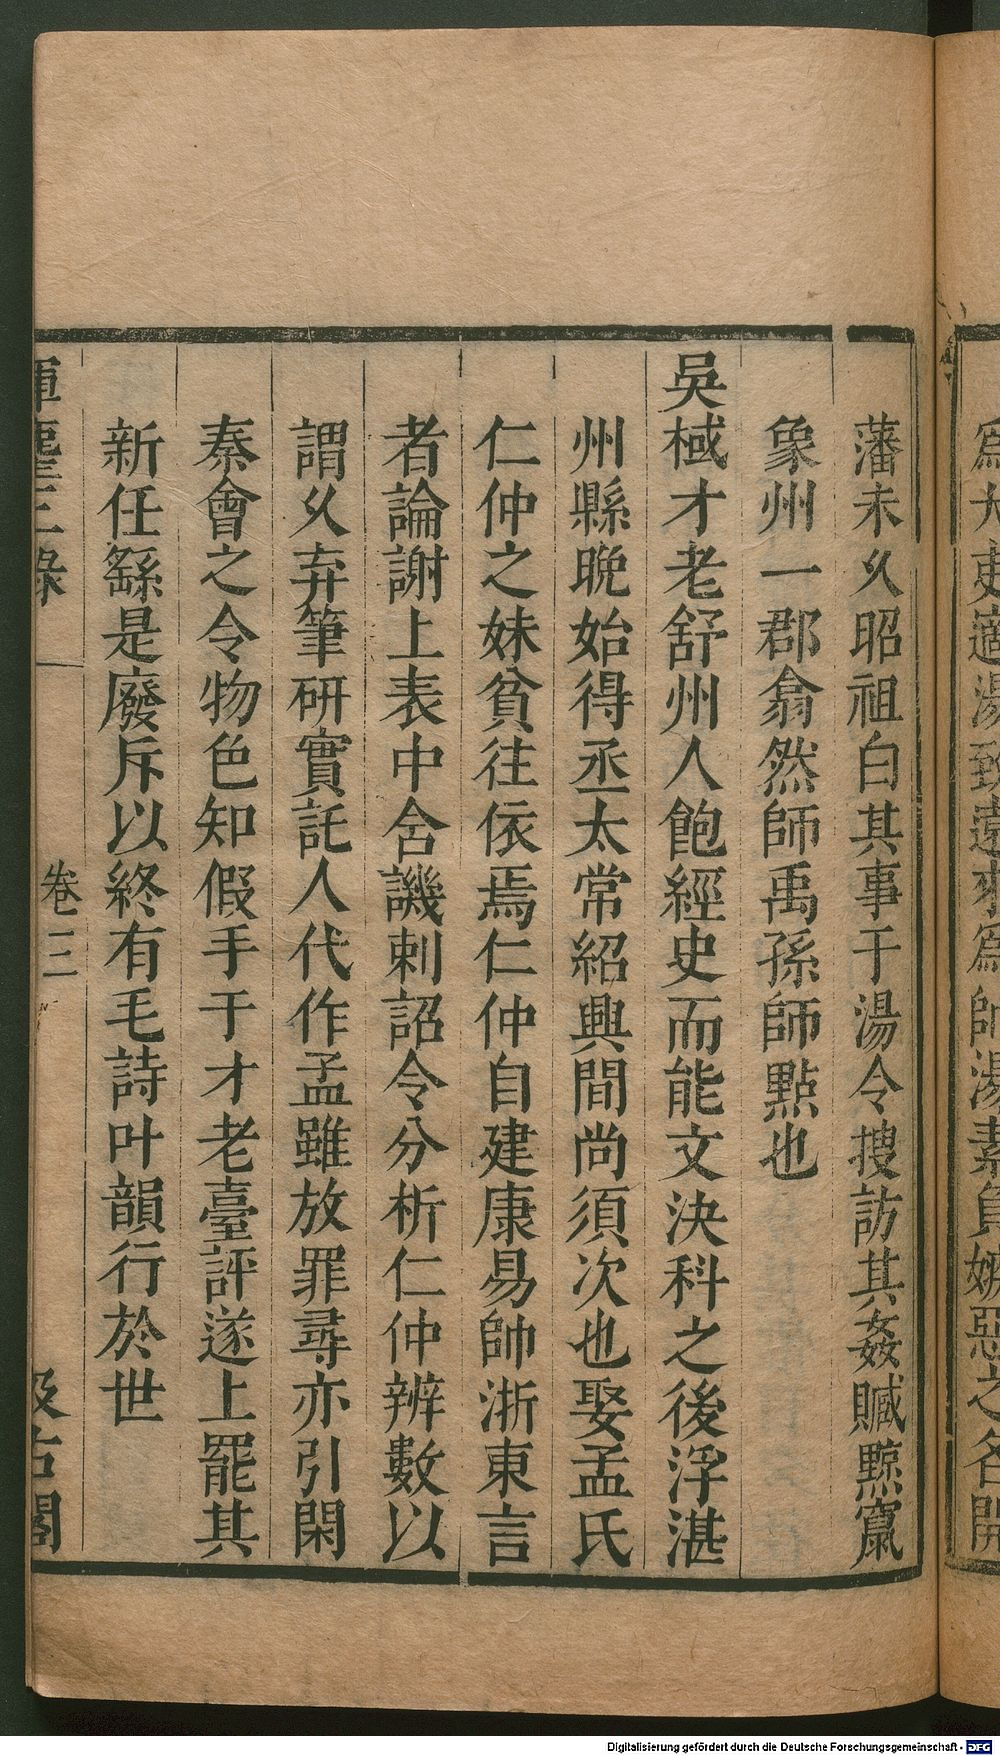 爲大吏適湯致遠來爲師湯素負嫉惡之名開
藩未乆昭祖白其事于湯令搜訪其姦贓黥竄
象州一郡翕然師禹孫師點也
吳棫才老舒州人飽經史而能文決科之後浮湛
州縣晚始得丞太常紹興間尚須次也娶孟氏
仁仲之妹貧往依焉仁仲自建康易帥浙東言
者論謝上表中含譏剌詔令分析仁仲辨數以
謂乆弃筆硏實託人代作孟雖放罪尋亦引閑
秦會之令物色知假手于才老臺評遂上罷其
新任繇是廢斥以終有毛詩叶韻行於世
揮麈三錄
卷三
汲古閣
Digitalisierung gefördert durch die Deutsche Forschungsgemeinschaft - DFG